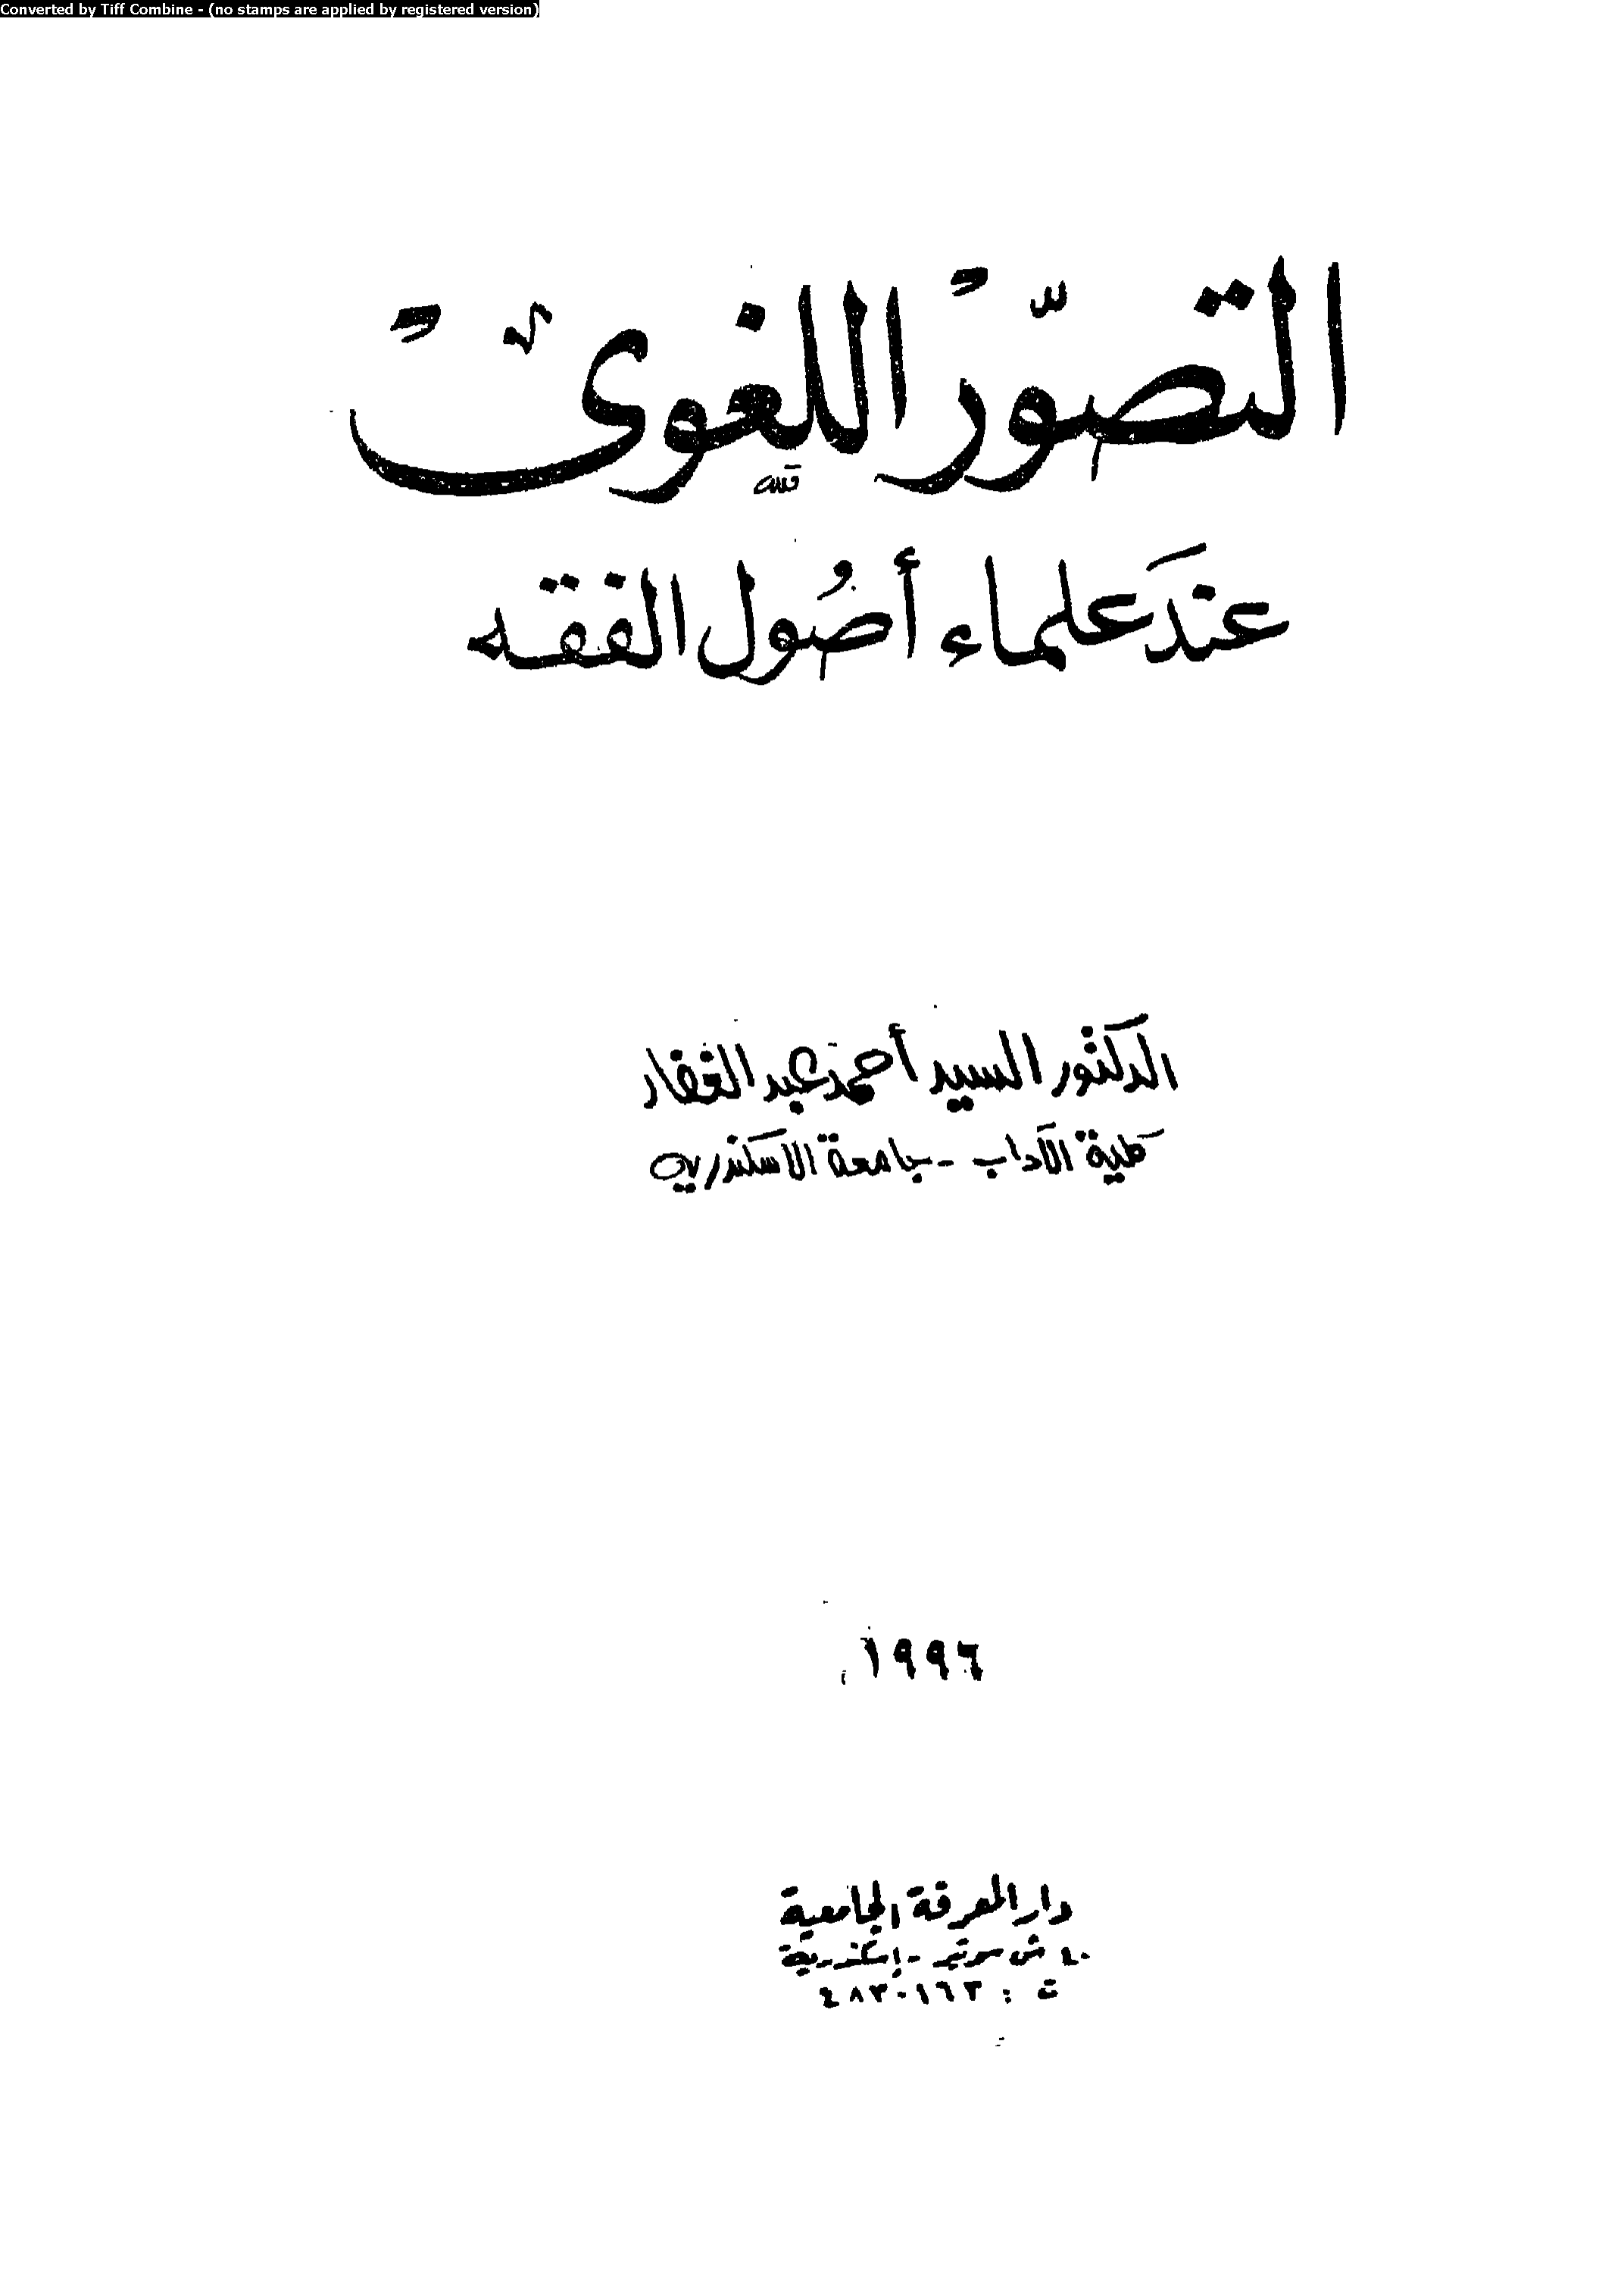 Converted by Tiff Combine - (no stamps are applied by registered version)
التصوّر اللغوى
عندَ علماء أصُول الفقه
الدكتور السيد أحمد عبد الغفار
كلية الآداب - جامعة الاسكندرية
١٩٩٦
دار المعرفة الجامعية
٤٠ ش سوتير - إسكندرية
ت : ٤٨٣٠١٦٣